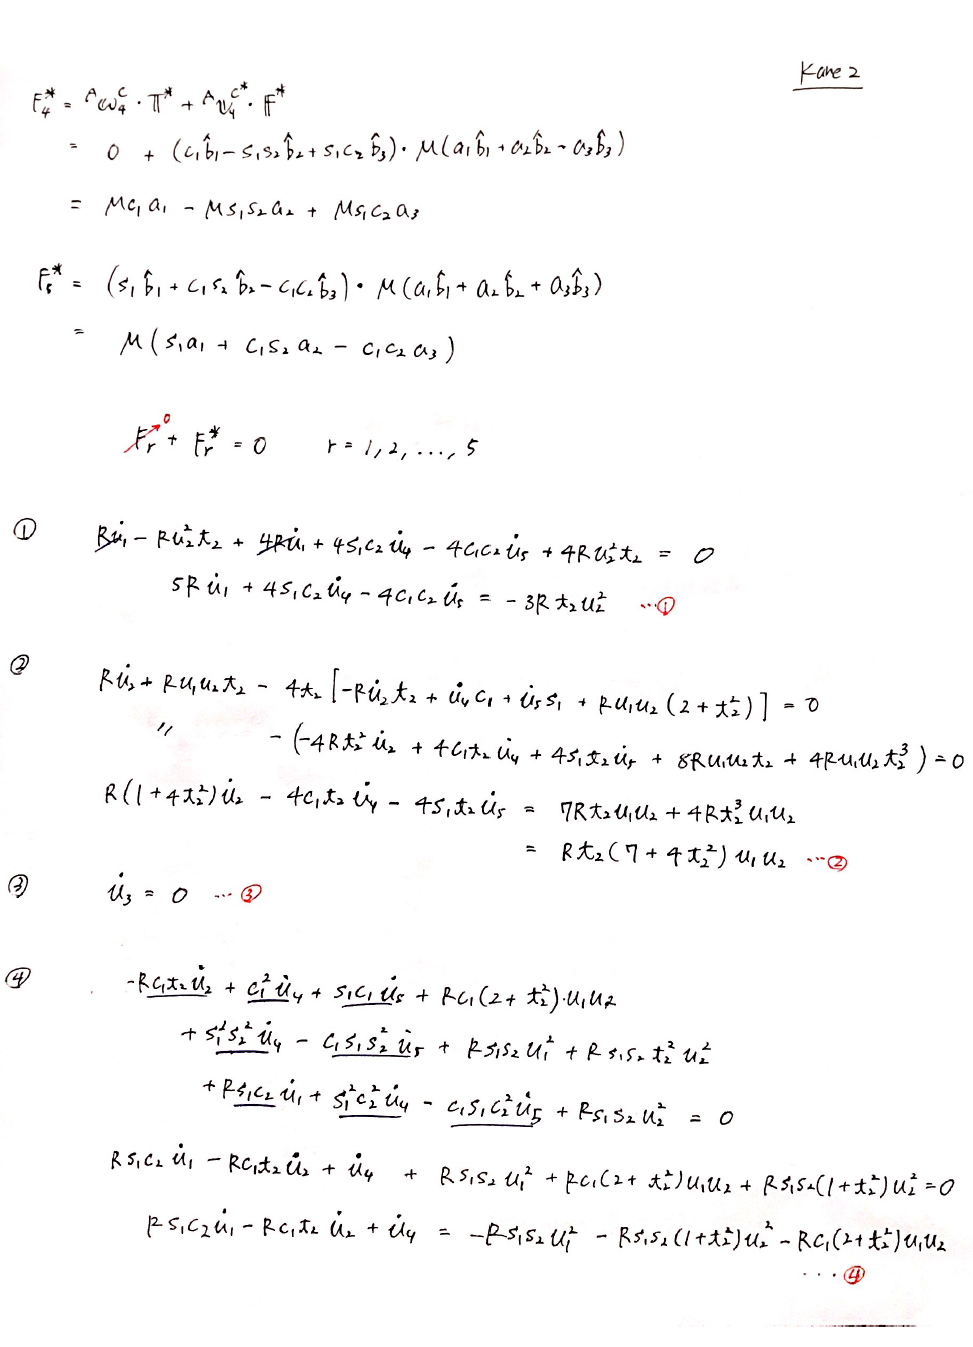 Kane 2
F₄* = ᴬω₄ᶜ · T* + ᴬv₄ᶜ* · F*
= 0 + (c₁b̂₁ - s₁s₂b̂₂ + s₁c₂b̂₃) · M(a₁b̂₁ + a₂b̂₂ - a₃b̂₃)
= Mc₁a₁ - Ms₁s₂a₂ + Ms₁c₂a₃
F₅* = (s₁b̂₁ + c₁s₂b̂₂ - c₁c₂b̂₃) · M(a₁b̂₁ + a₂b̂₂ + a₃b̂₃)
= M(s₁a₁ + c₁s₂a₂ - c₁c₂a₃)
Fᵣ↗⁰ + Fᵣ* = 0 r = 1, 2, ..., 5
① Ru̇₁ - Ru₂²t₂ + 4Ru̇₁ + 4s₁c₂u̇₄ - 4c₁c₂u̇₅ + 4Ru₂²t₂ = 0
5Ru̇₁ + 4s₁c₂u̇₄ - 4c₁c₂u̇₅ = -3Rt₂u₂² ...①
② Ru̇₂ + Ru₁u₂t₂ - 4t₂[-Ru̇₂t₂ + u̇₄c₁ + u̇₅s₁ + Ru₁u₂(2 + t₂²)] = 0
〃 - (-4Rt₂²u̇₂ + 4c₁t₂u̇₄ + 4s₁t₂u̇₅ + 8Ru₁u₂t₂ + 4Ru₁u₂t₂³) = 0
R(1 + 4t₂²)u̇₂ - 4c₁t₂u̇₄ - 4s₁t₂u̇₅ = 7Rt₂u₁u₂ + 4Rt₂³u₁u₂
= Rt₂(7 + 4t₂²)u₁u₂ ...②
③ u̇₃ = 0 ...③
④ -Rc₁t₂u̇₂ + c₁²u̇₄ + s₁c₁u̇₅ + Rc₁(2 + t₂²)·u₁u₂
+ s₁²s₂²u̇₄ - c₁s₁s₂²u̇₅ + Rs₁s₂u₁² + Rs₁s₂t₂²u₂²
+ Rs₁c₂u̇₁ + s₁²c₂²u̇₄ - c₁s₁c₂²u̇₅ + Rs₁s₂u₂² = 0
Rs₁c₂u̇₁ - Rc₁t₂u̇₂ + u̇₄ + Rs₁s₂u₁² + Rc₁(2 + t₂²)u₁u₂ + Rs₁s₂(1 + t₂²)u₂² = 0
Rs₁c₂u̇₁ - Rc₁t₂u̇₂ + u̇₄ = -Rs₁s₂u₁² - Rs₁s₂(1 + t₂²)u₂² - Rc₁(2 + t₂²)u₁u₂
...④